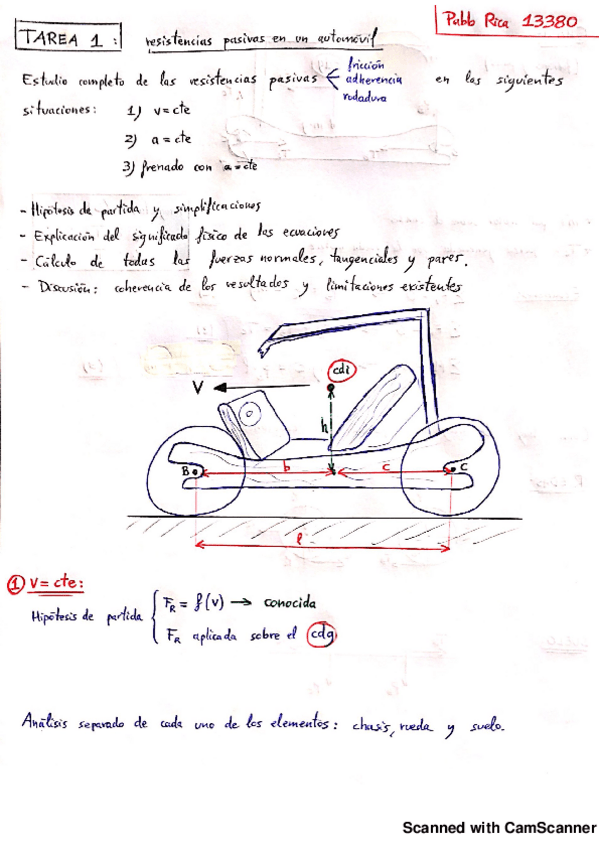 Pubb Rica 13380
TAREA 1: resistencias pasivas en un automóvil
Estudio completo de las resistencias pasivas fricción adherencia rodadura en las siguientes
situaciones: 1) v=cte
2) a=cte
3) frenado con a=cte
- Hipótesis de partida y simplificaciones
- Explicación del significado físico de las ecuaciones
- Cálculo de todas las fuerzas normales, tangenciales y pares.
- Discusión: coherencia de los resultados y limitaciones existentes
cdg
V
h
B b c C
l
1 V=cte:
Hipótesis de partida { FR = f(v) → conocida
FR aplicada sobre el cdg
Análisis separado de cada uno de los elementos: chasis, rueda y suelo.
Scanned with CamScanner